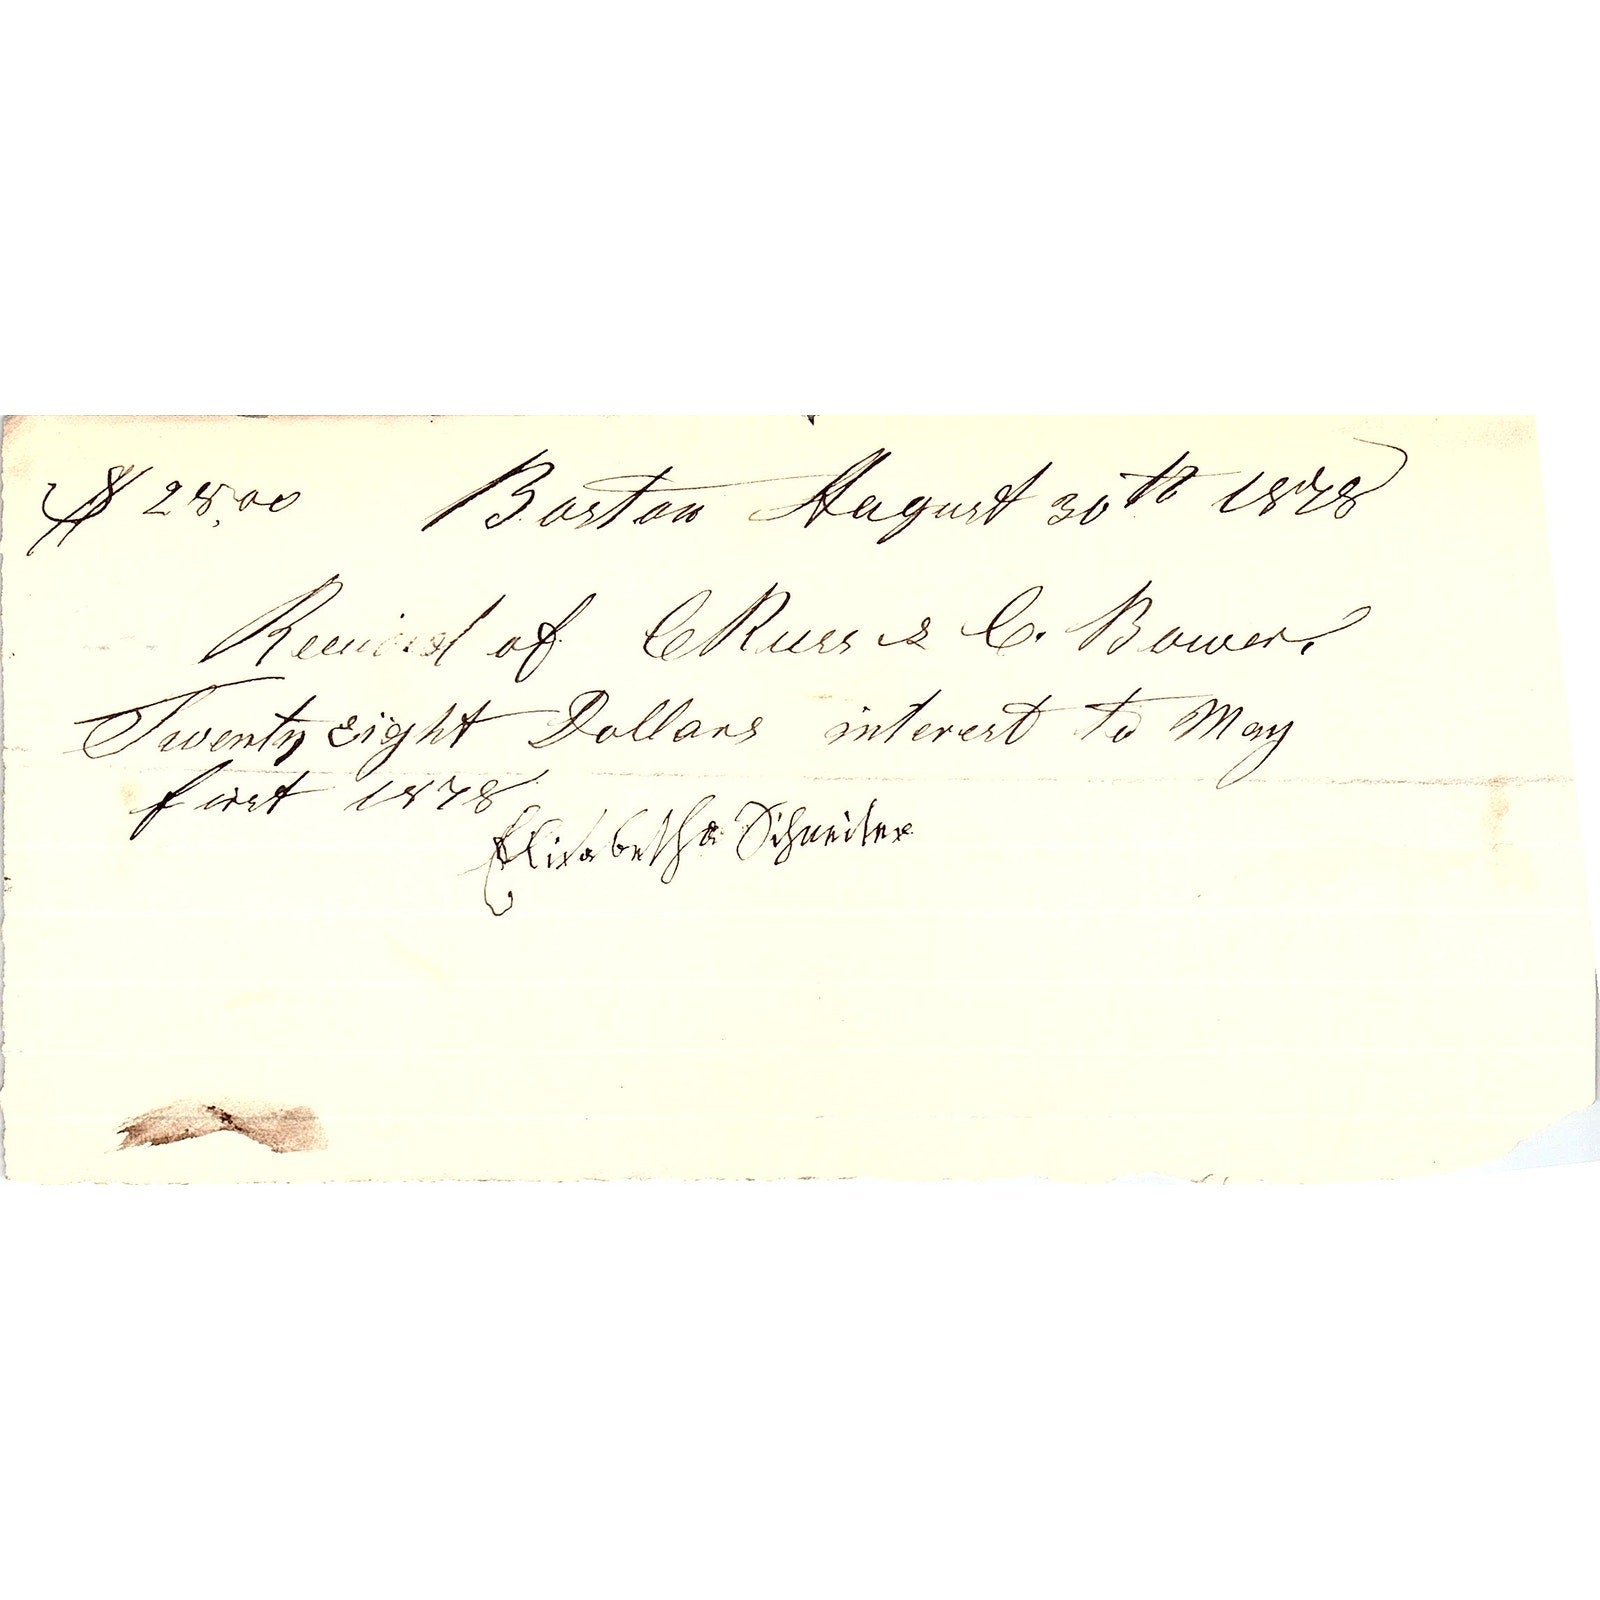 $ 28,00 Boston August 30th 1878
Received of C Russ & C. Bower.
Twenty eight Dollars interest to May
first 1878
Elisabetha Schneiter